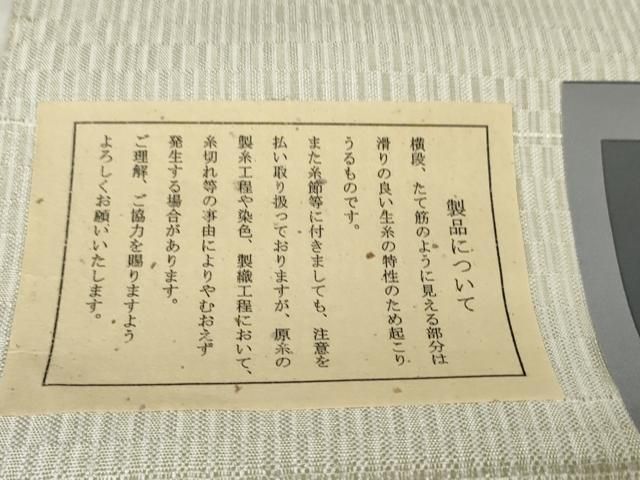 製品について
横段、たて筋のように見える部分は
滑りの良い生糸の特性のため起こり
うるものです。
また糸節等に付きましても、注意を
払い取り扱っておりますが、原糸の
製糸工程や染色、製織工程において、
糸切れ等の事由によりやむおえず
発生する場合があります。
ご理解、ご協力を賜りますよう
よろしくお願いいたします。